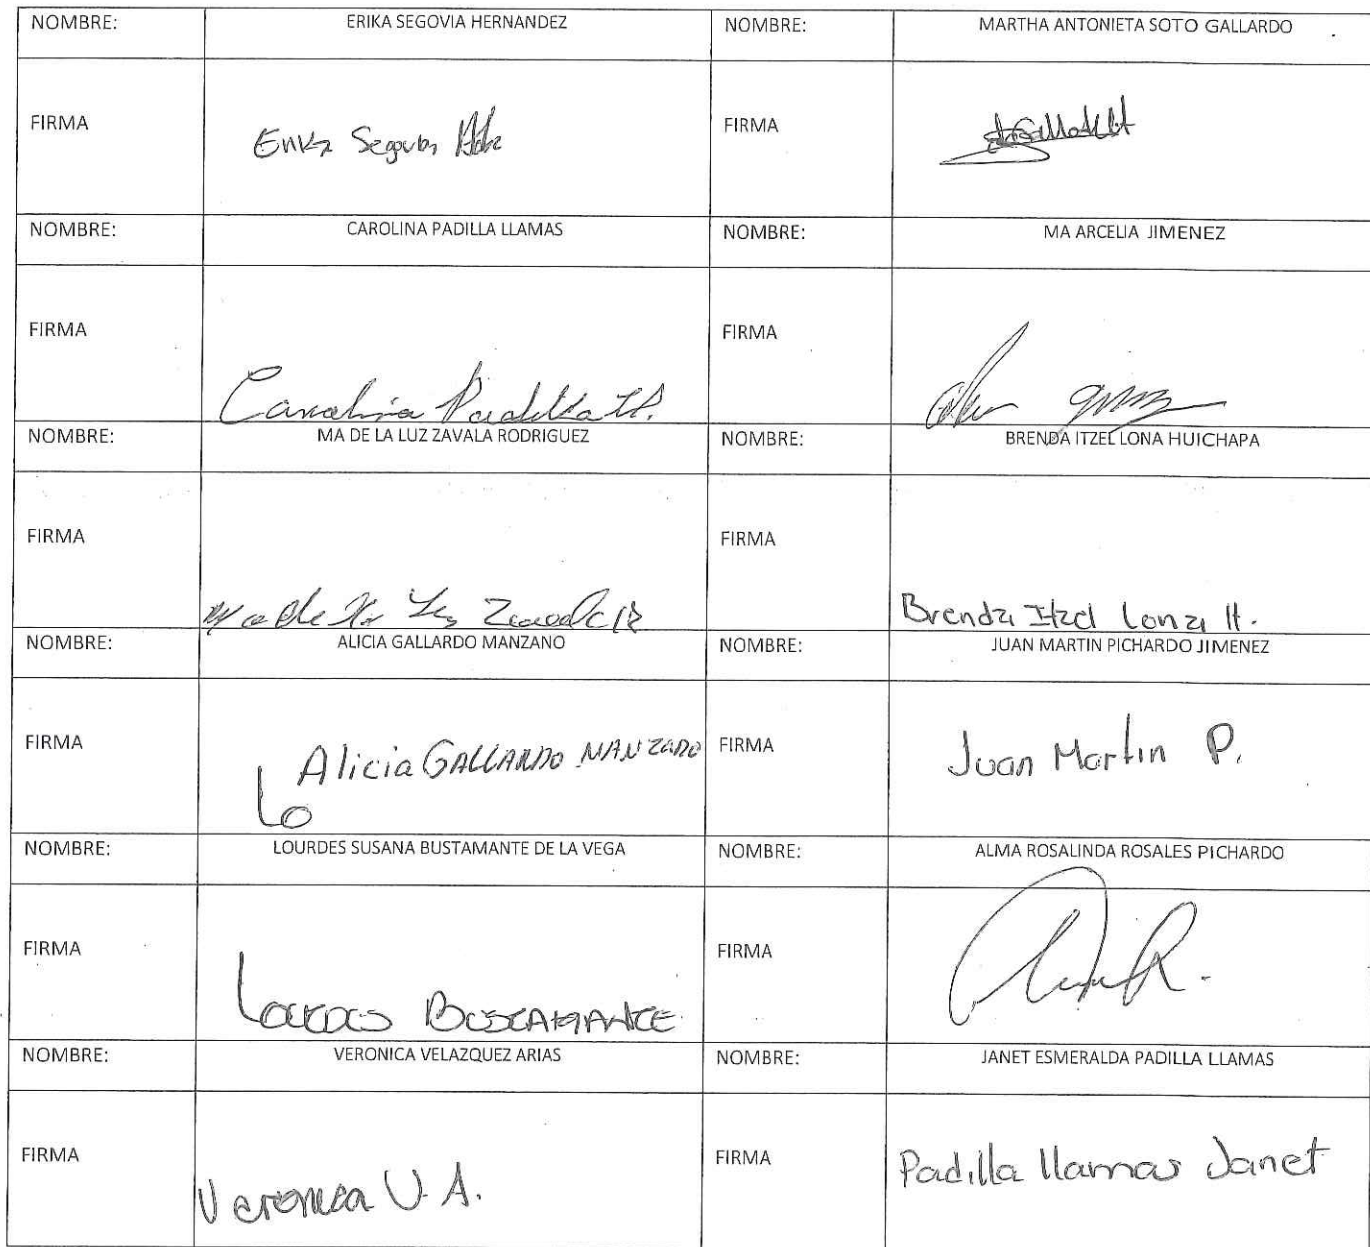 NOMBRE: ERIKA SEGOVIA HERNANDEZ NOMBRE: MARTHA ANTONIETA SOTO GALLARDO
FIRMA Erika Segovia FIRMA
NOMBRE: CAROLINA PADILLA LLAMAS NOMBRE: MA ARCELIA JIMENEZ
FIRMA Carolina Padilla Ll. FIRMA
NOMBRE: MA DE LA LUZ ZAVALA RODRIGUEZ NOMBRE: BRENDA ITZEL LONA HUICHAPA
FIRMA Ma de la Luz Zavala R FIRMA Brenda Itzel Lona H.
NOMBRE: ALICIA GALLARDO MANZANO NOMBRE: JUAN MARTIN PICHARDO JIMENEZ
FIRMA Alicia GALLARDO MANZANO FIRMA Juan Martin P.
Lo
NOMBRE: LOURDES SUSANA BUSTAMANTE DE LA VEGA NOMBRE: ALMA ROSALINDA ROSALES PICHARDO
FIRMA Lourdes BUSTAMANTE FIRMA
NOMBRE: VERONICA VELAZQUEZ ARIAS NOMBRE: JANET ESMERALDA PADILLA LLAMAS
FIRMA Veronica V. A. FIRMA Padilla llamas Janet